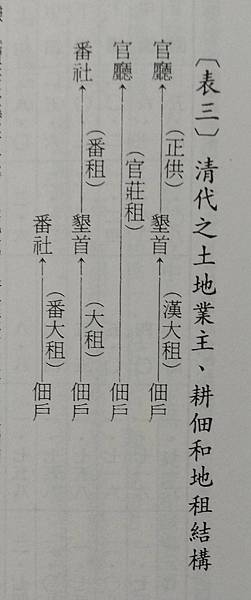 〔表三〕清代之土地業主、耕佃和地租結構
官廳←(正供)墾首←(漢大租)佃戶
官廳←(官莊租)佃戶
番社←(番租)墾首←(大租)佃戶
番社←(番大租)佃戶